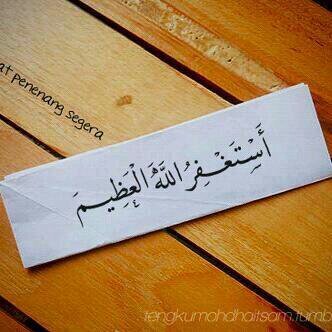 at penenang segera
أَسْتَغْفِرُ اللَّهَ الْعَظِيمَ
tengkumohdhaitsam.tumb